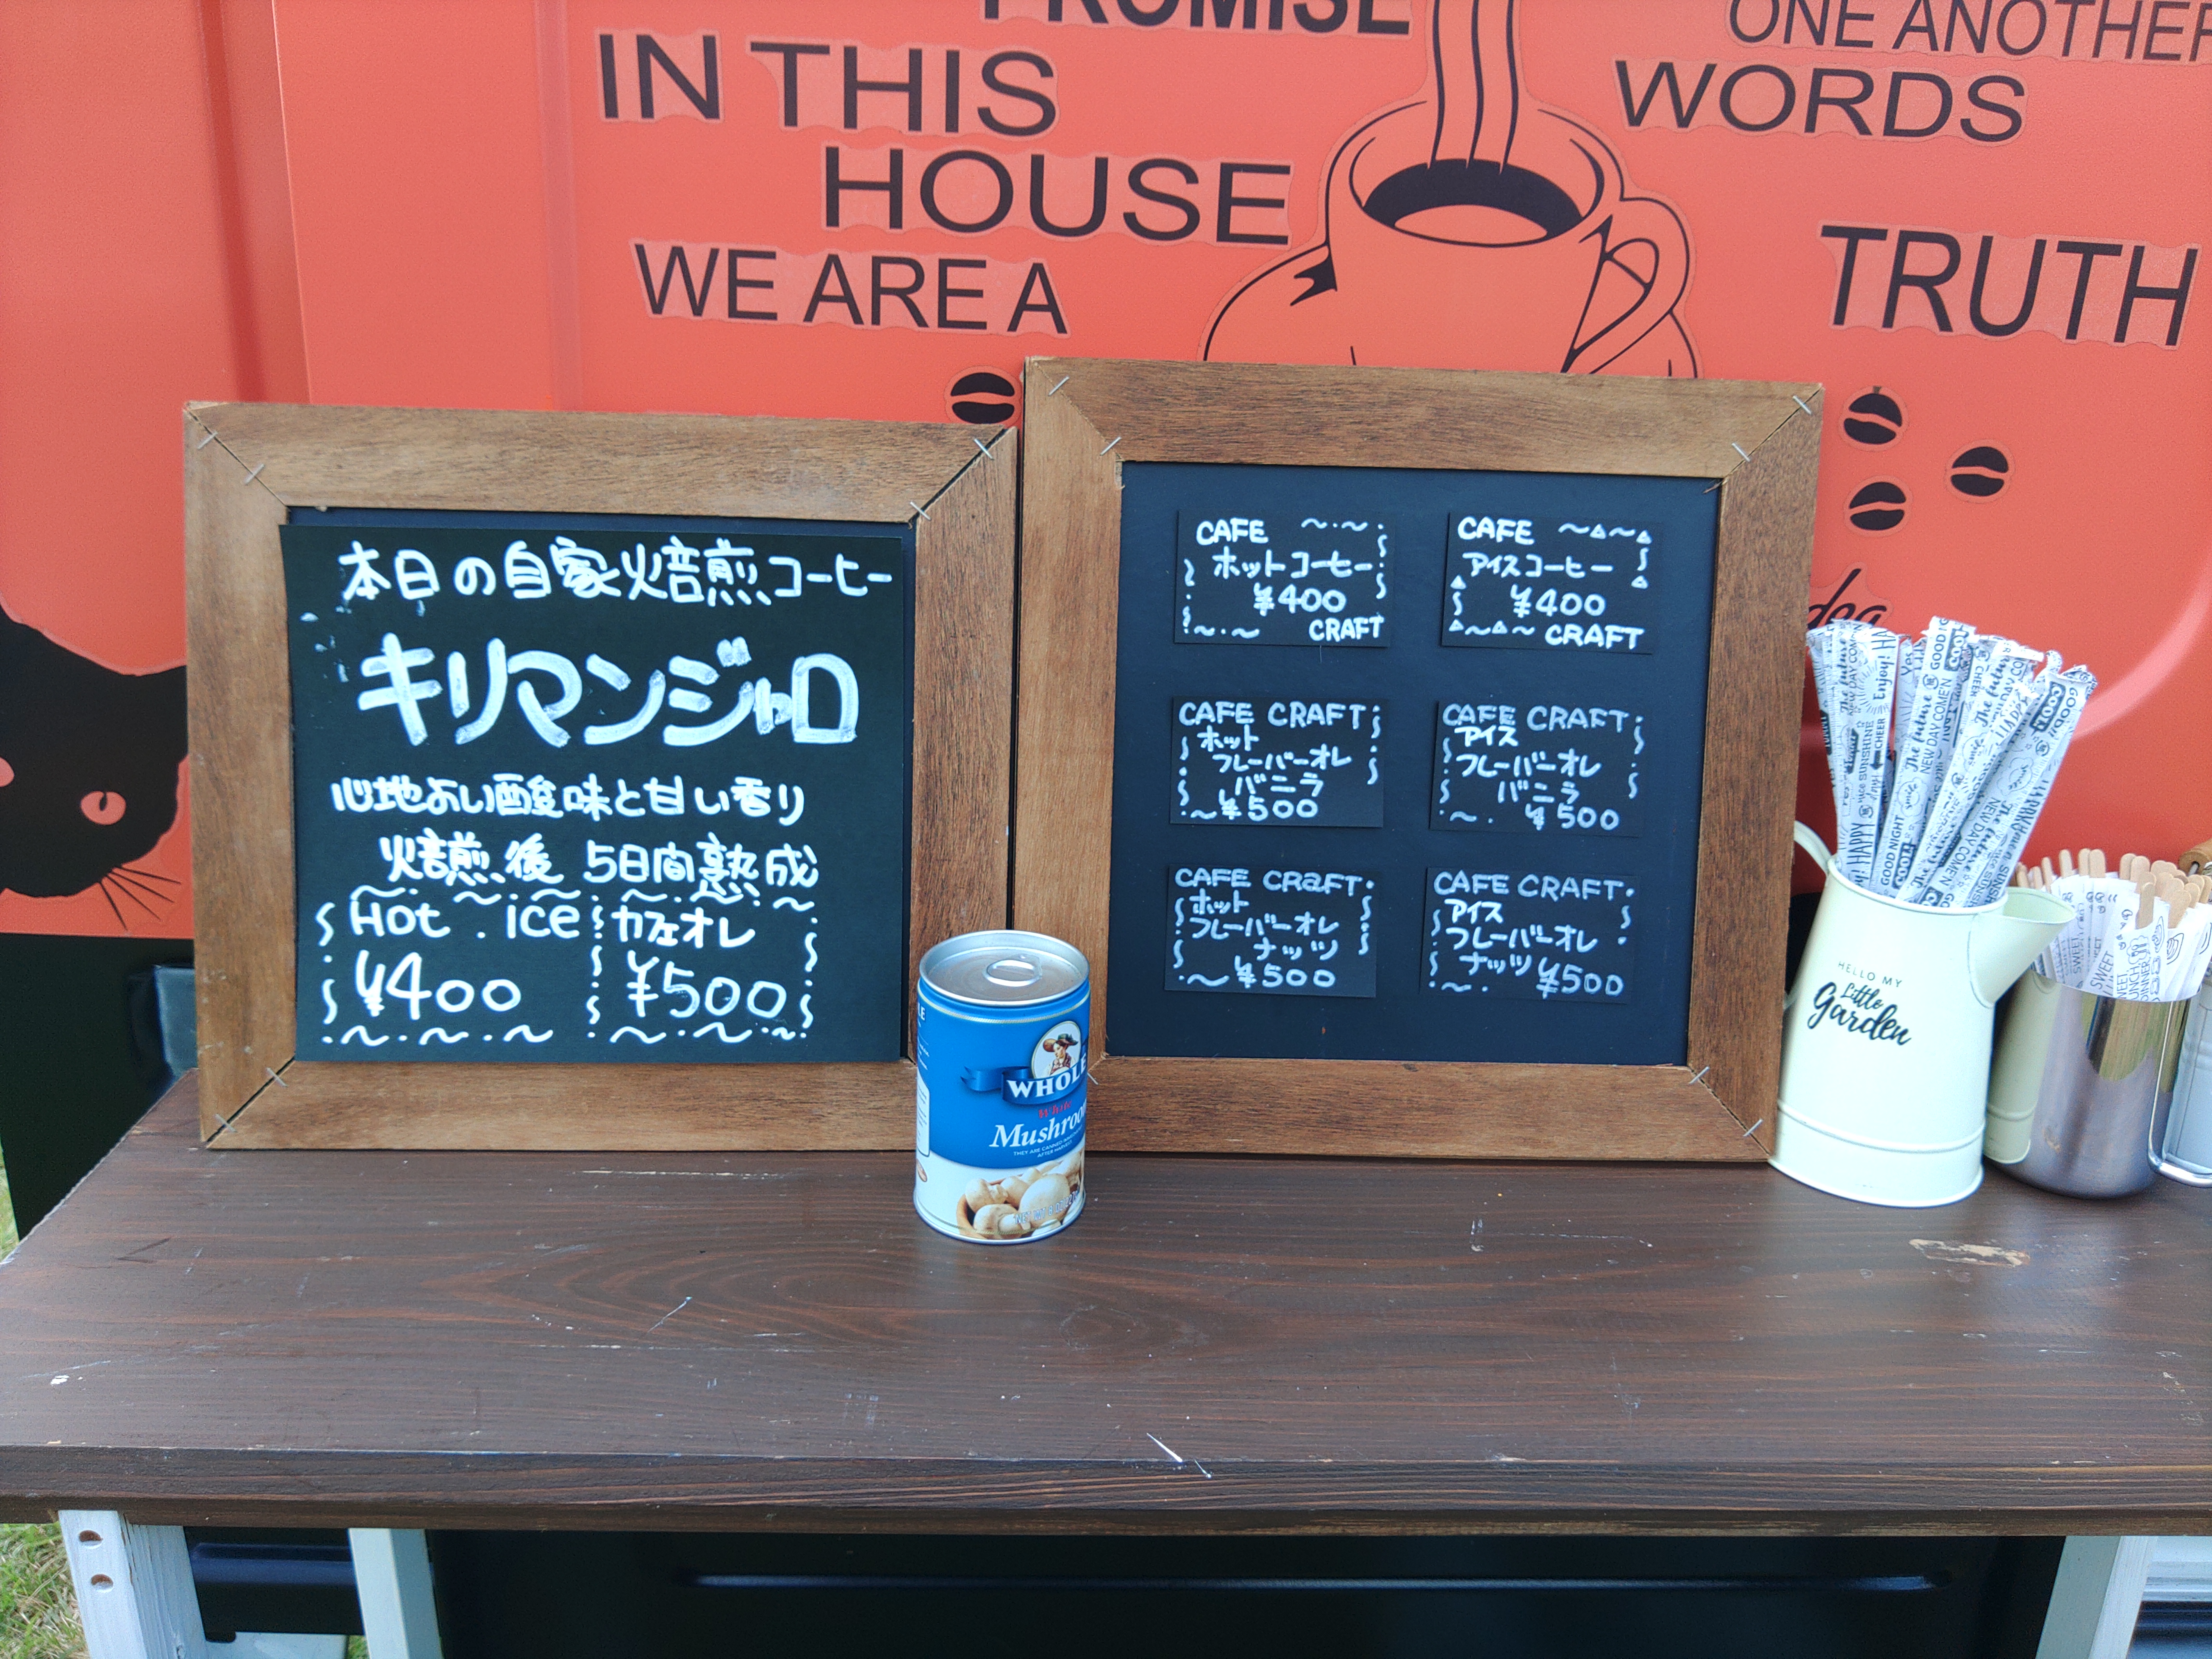 PROMISE
IN THIS
HOUSE
WE ARE A
ONE ANOTHER
WORDS
TRUTH
本日の自家焙煎コーヒー
キリマンジャロ
心地よい酸味と甘い香り
焙煎後 5日間熟成
Hot . ice
¥400
カフェオレ
¥500
CAFE
ホットコーヒー
¥400
CRAFT
CAFE
アイスコーヒー
¥400
CRAFT
CAFE CRAFT
ホット
フレーバーオレ
バニラ
¥500
CAFE CRAFT
アイス
フレーバーオレ
バニラ
¥500
CAFE CRaFT
ホット
フレーバーオレ
ナッツ
¥500
CAFE CRAFT
アイス
フレーバーオレ
ナッツ ¥500
WHOLE
White
Mushroo
AFTER HARVEST
HELLO MY
Little
Garden
GOOD NIGHT
NEW DAY COME'N
Enjoy!
HAPPY
The future
CHEER
SWEET